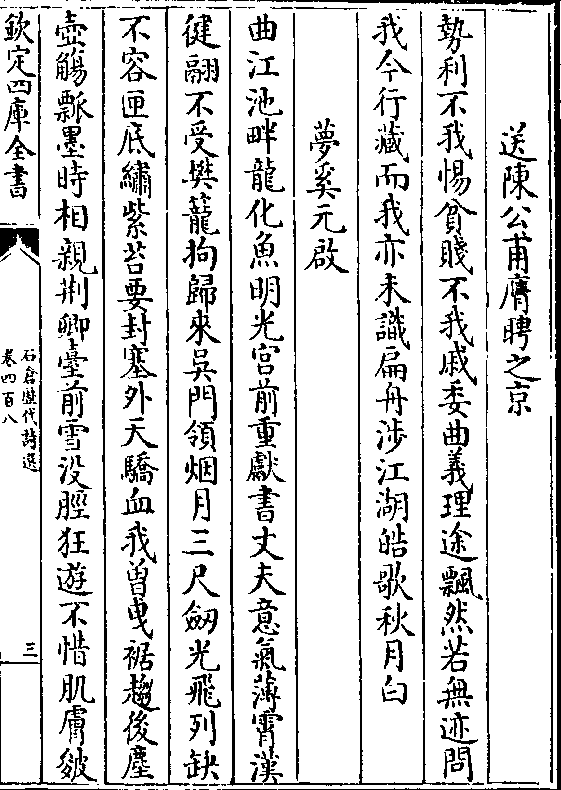 送陳公甫膺聘之京
勢利不我惕貧賤不我戚委曲義理途飄然若無迹問
我今行藏而我亦未識扁舟涉江湖皓歌秋月白
夢奚元啟
曲江池畔龍化魚明光宮前重獻書丈夫意氣薄霄漢
健翮不受樊籠拘歸來吳門領烟月三尺劒光飛列缺
不容匣底繡紫苔要封塞外天驕血我曾曳裾趨後塵
壺觴瓢墨時相親荆卿臺前雪没脛狂遊不惜肌膚皴
欽定四庫全書
石倉歴代詩選
卷四百八
三